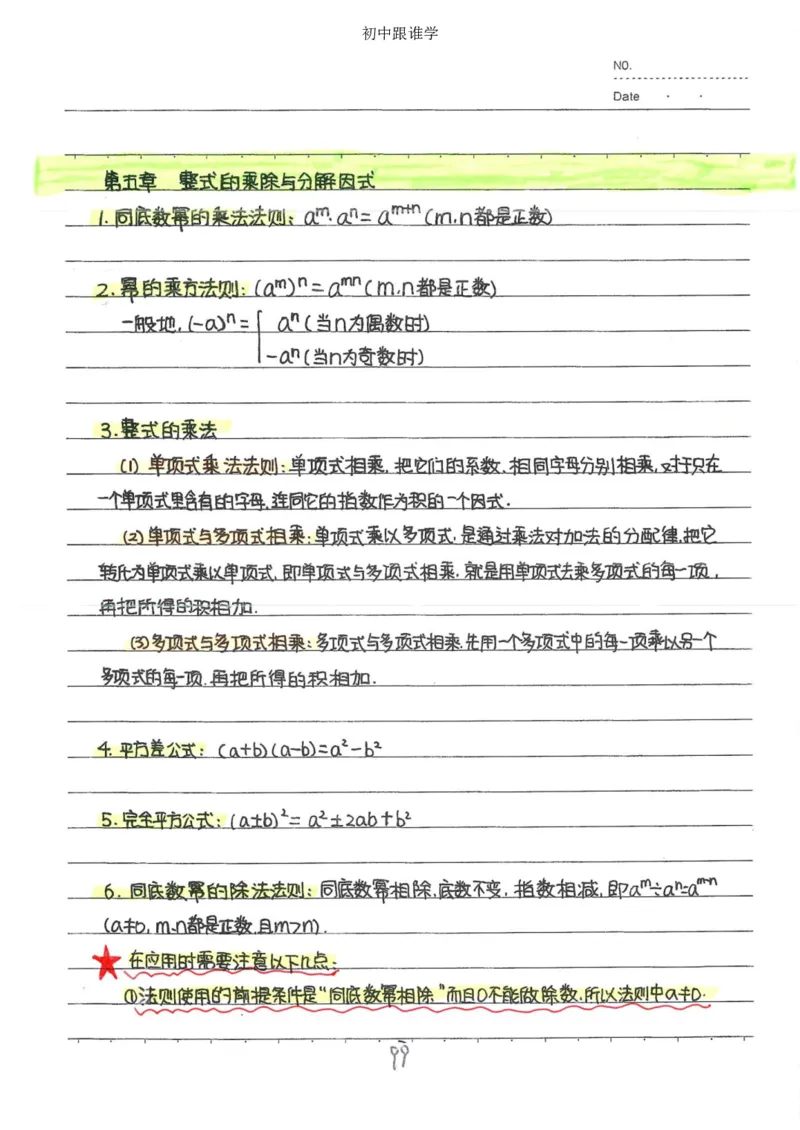 初中跟谁学
NO.
Date · ·
第五章 整式的乘除与分解因式
1. 同底数幂的乘法法则: aᵐ·aⁿ=aᵐ⁺ⁿ(m,n都是正数)
2. 幂的乘方法则:(aᵐ)ⁿ=aᵐⁿ(m,n都是正数)
一般地,(-a)ⁿ={ aⁿ(当n为偶数时)
-aⁿ(当n为奇数时)
3.整式的乘法
(1) 单项式乘法法则:单项式相乘,把它们的系数、相同字母分别相乘,对于只在
一个单项式里含有的字母,连同它的指数作为积的一个因式.
(2)单项式与多项式相乘:单项式乘以多项式,是通过乘法对加法的分配律,把它
转化为单项式乘以单项式,即单项式与多项式相乘,就是用单项式去乘多项式的每一项,
再把所得的积相加.
(3)多项式与多项式相乘:多项式与多项式相乘,先用一个多项式中的每一项乘以另一个
多项式的每一项,再把所得的积相加.
4. 平方差公式: (a+b)(a-b)=a²-b²
5. 完全平方公式:(a±b)²= a²±2ab+b²
6. 同底数幂的除法法则: 同底数幂相除,底数不变,指数相减,即aᵐ÷aⁿ=aᵐ⁻ⁿ
(a≠0, m、n都是正数,且m>n).
★ 在应用时需要注意以下几点:
①法则使用的前提条件是“同底数幂相除”而且0不能做除数,所以法则中a≠0.
99